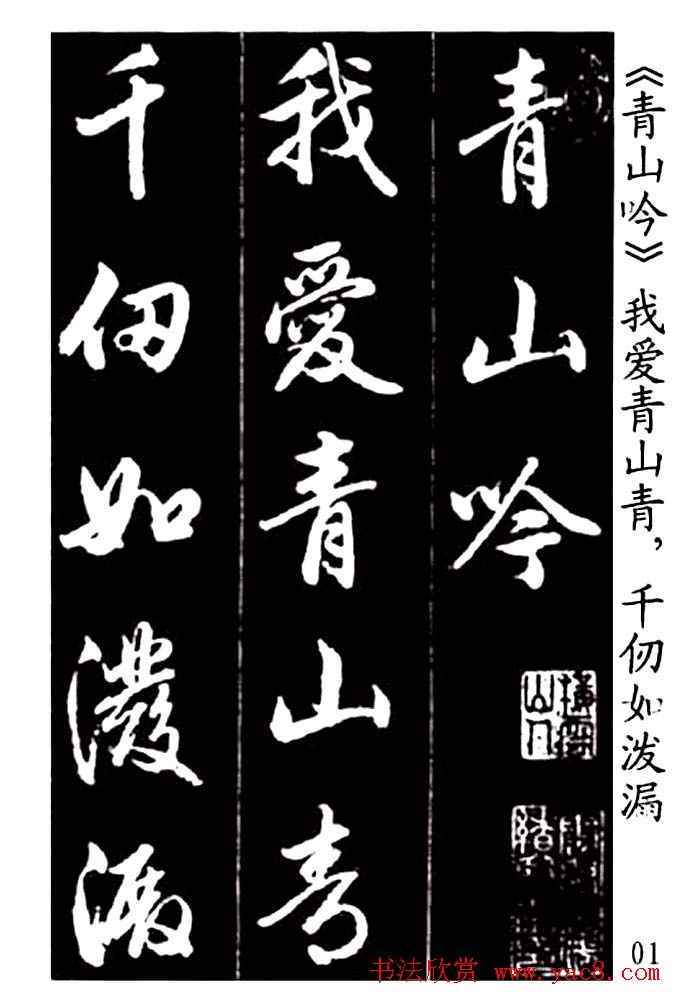 《青山吟》 我爱青山青，千仞如泼漏
青山吟
我愛青山青
千仞如潑漏
01
书法欣赏 www.yac8.com